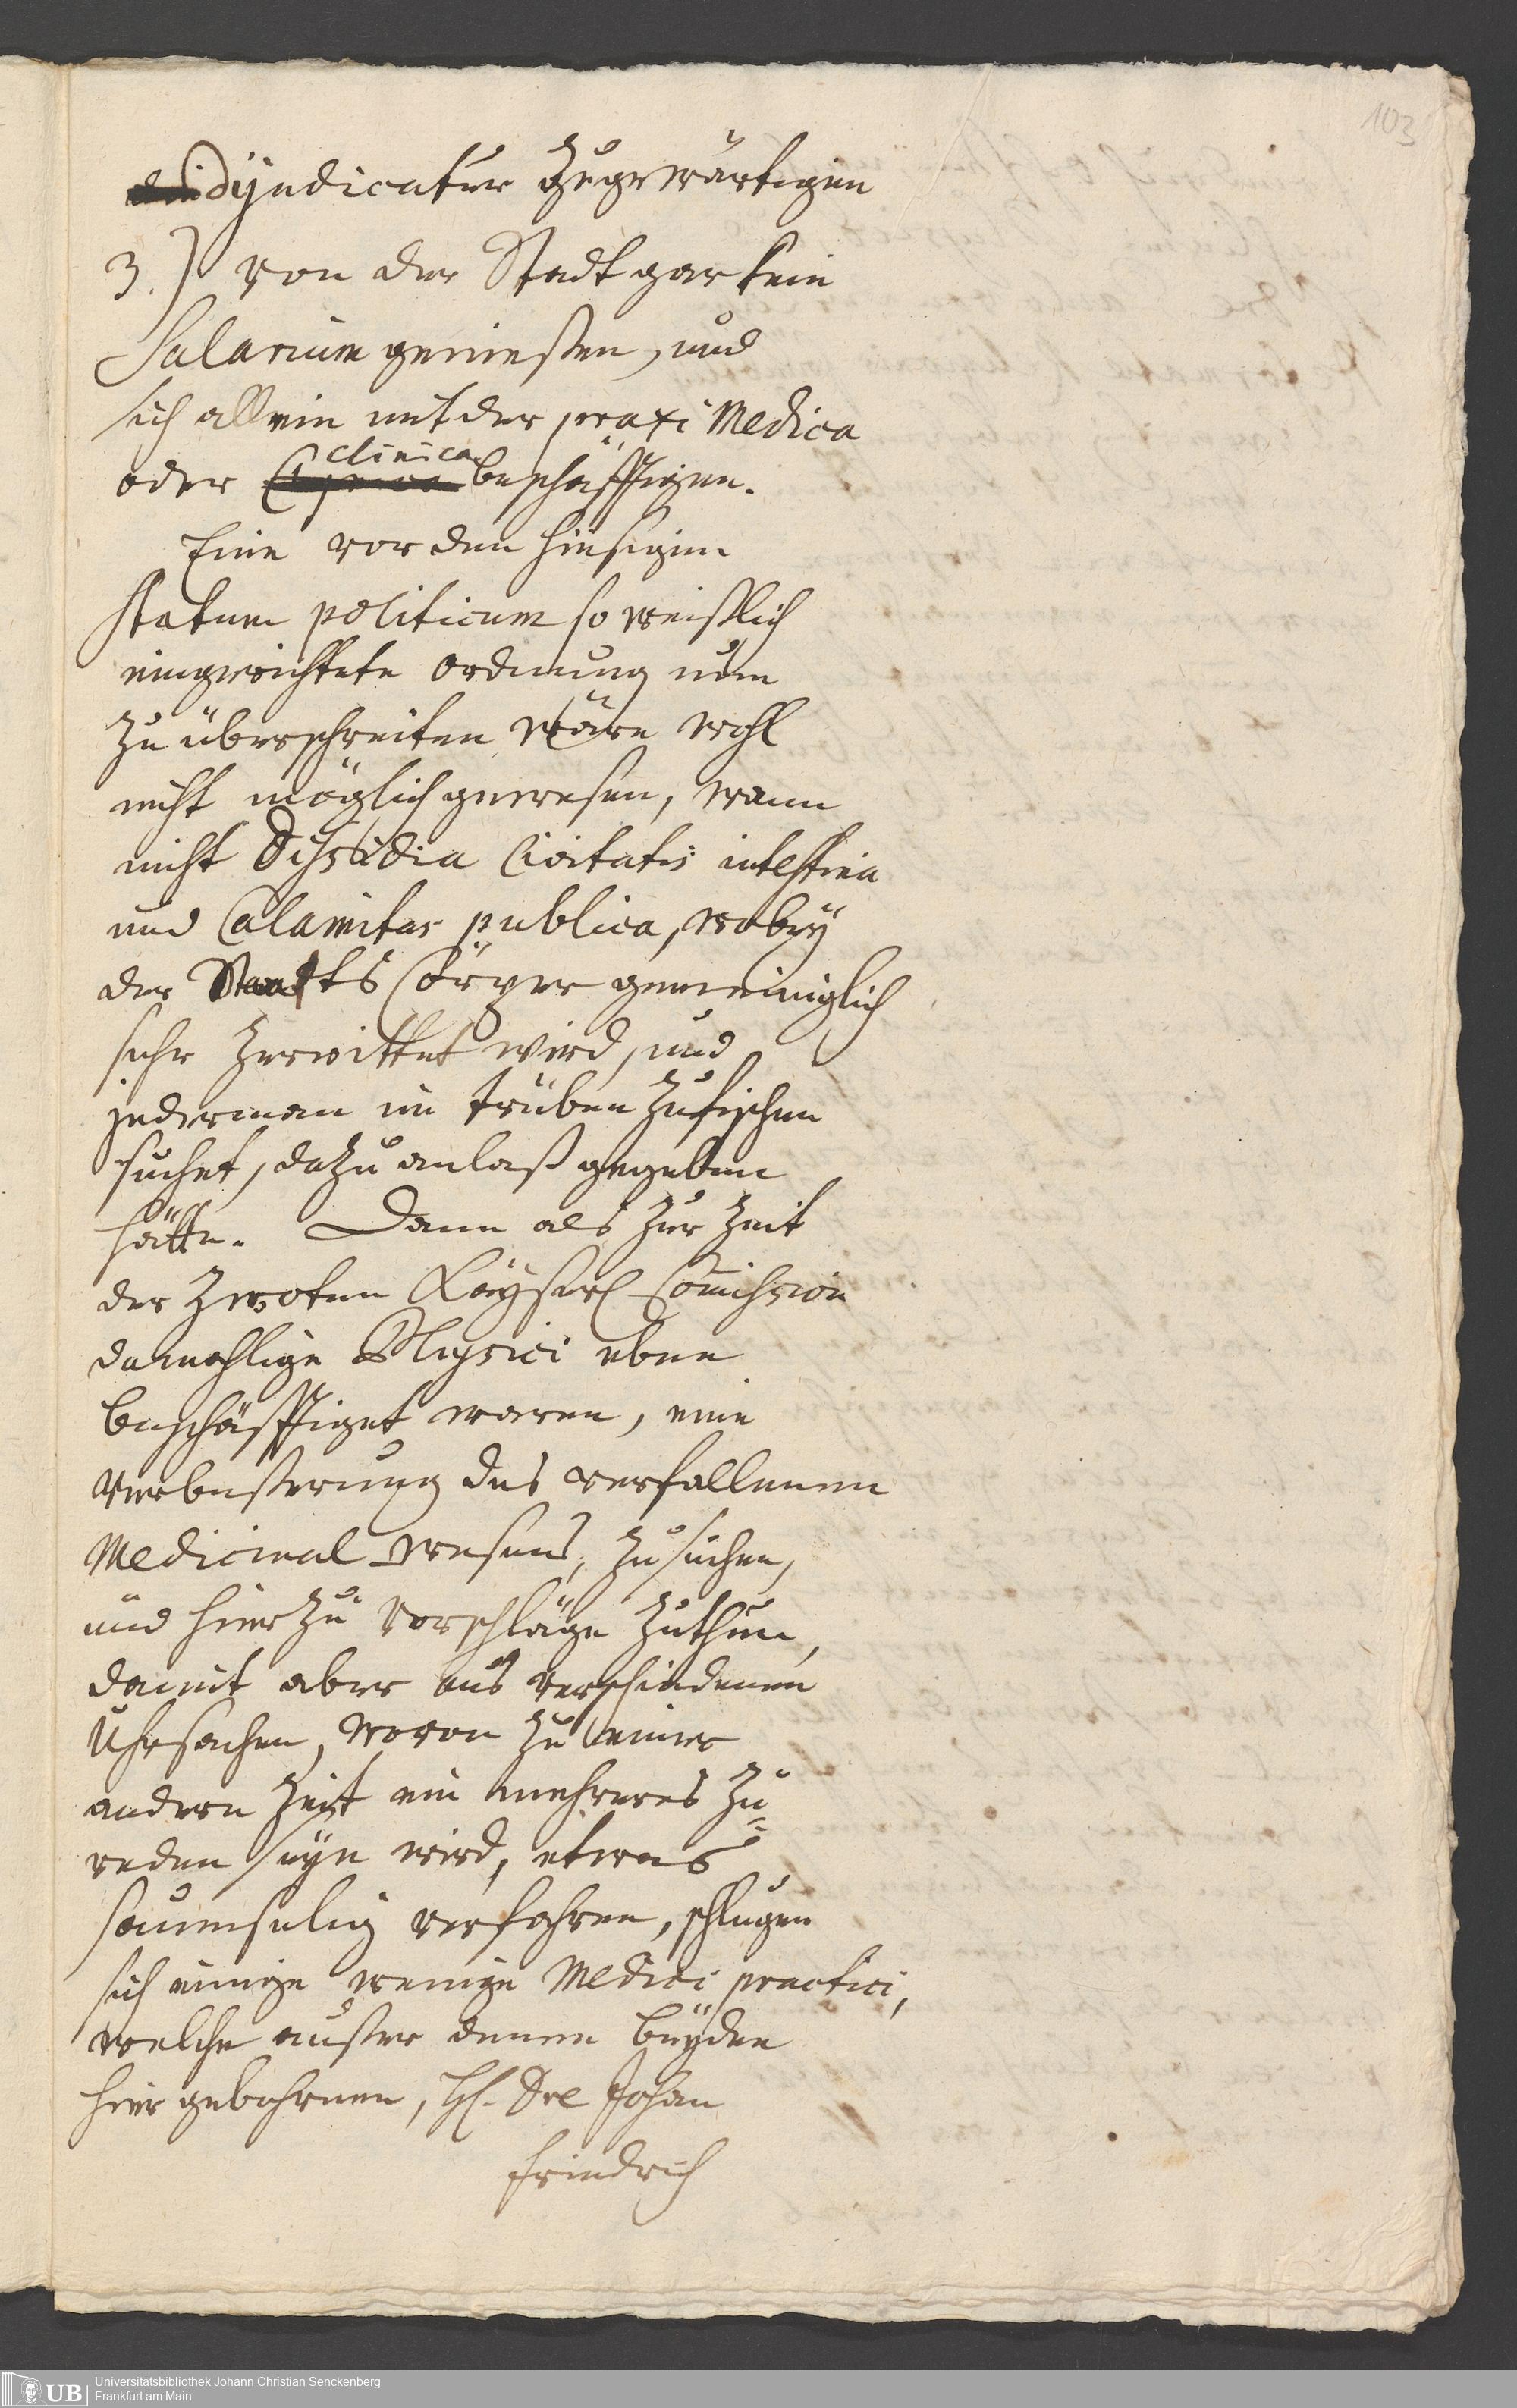 103
dijudicatur zu gewärtigen
3.) von der Stadt gar kein
Salarium genießen, und
sich allein mit der praxi Medica
oder clinica beschäfftigen.
Eine vor den hiesigen
statum politicum so weißlich
eingerichtete Ordnung nun
zu überschreiten wäre wohl
nicht möglich gewesen, wann
nicht Dissidia Civitatis intestina
und Calamitas publica, wobey
der Staats Cörper gemeiniglich
sehr zerrittet wird, und
jederman im trüben zu fischen
suchet, dazu anlaß gegeben
hätte. Dann als zur Zeit
der Zwoten Kayserl Commission
damahlige Physici eben
beschäfftiget waren, eine
Verbeßerung des verfallenen
Medicinal-Wesens, zu suchen,
und hierzu Vorschläge zuthun,
damit aber aus verschiedenen
Uhrsachen, wovon zu einer
andern Zeit ein mehreres zu
reden seyn wird, etwas
saumselig verfahren, schlugen
sich einige wenige Medici practici,
welche außer denen beyden
hier gebohrnen, H. Dre Johan
Friedrich
UB
Universitätsbibliothek Johann Christian Senckenberg
Frankfurt am Main